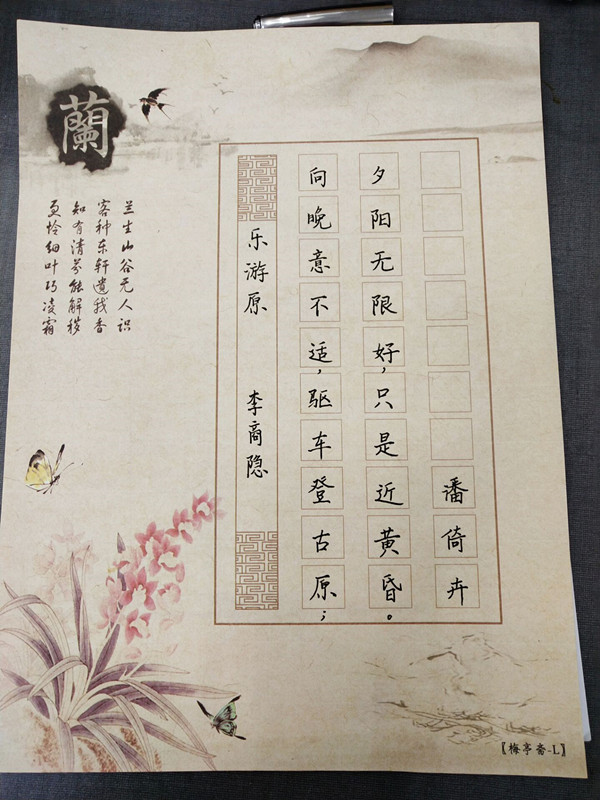 蘭
兰生山谷无人识
客种东轩遗我香
知有清芬能解秽
更怜细叶巧凌霜
乐游原 李商隐
向晚意不适，驱车登古原；
夕阳无限好，只是近黄昏。
潘倚卉
【梅亭斋-L】